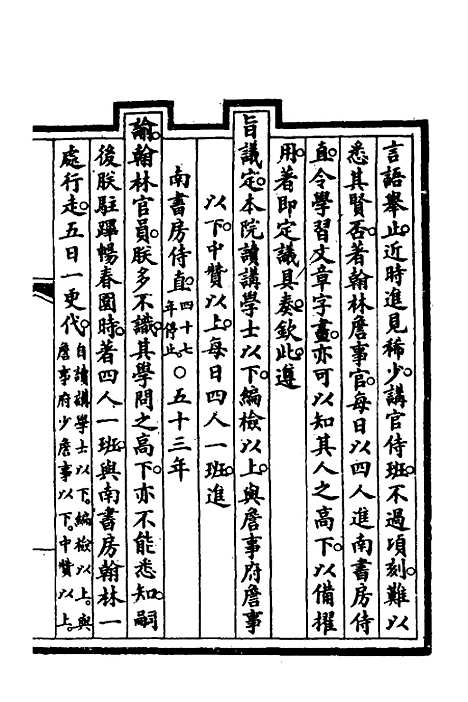 言語舉止近時進見稀少講官侍班不過頃刻難以
悉其賢否著翰林詹事官每日以四人進南書房侍
直令學習文章字畫亦可以知其人之高下以備擢
用著即定議具奏欽此遵
旨議定本院讀講學士以下編檢以上與詹事府詹事
以下中贊以上每日四人一班進
南書房侍直四十七年停止○五十三年
諭翰林官員朕多不識其學問之高下亦不能悉知嗣
後朕駐蹕暢春園時著四人一班與南書房翰林一
處行走五日一更代自讀講學士以下編檢以上與詹事府少詹事以下中贊以上